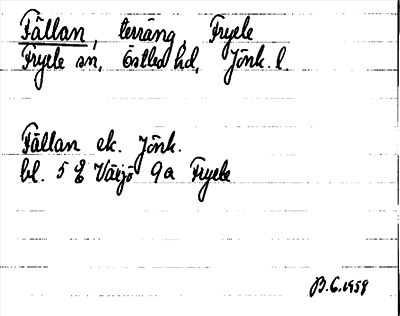 Fällan, terräng, Fryele
Fryele sn, Östbo hd, Jönk. l.
Fällan ek. Jönk.
bl. 5 E Växjö 9a Fryele
B.G. 1959